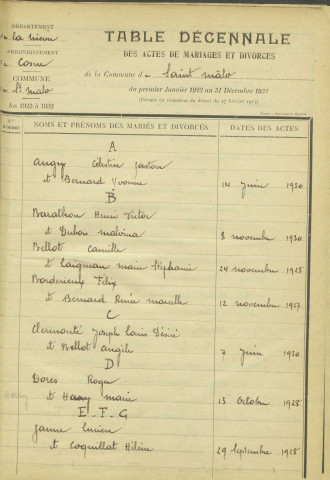 DÉPARTEMENT
de la Nièvre
ARRONDISSEMENT
de Cosne
COMMUNE
de St Malo
An 1923 à 1932
TABLE DÉCENNALE
DES ACTES DE MARIAGES ET DIVORCES
de la Commune de Saint Mâlo
du premier Janvier 1923 au 31 Décembre 1932
(Dressée en exécution du décret du
NOMS ET PRÉNOMS DES MARIÉS ET DIVORCÉS DATES DES ACTES
A
Célestin Gaston
et Bernard Yvonne 14 Juin 1930
B
Barathon Henri Victor
et Dubois Malvina 8 novembre 1930
Bellot Camille
et Laigneau Marie Stéphanie 24 novembre 1928
Félix
et Bernard Renée Marcelle 12 novembre 1927
C
Joseph Louis Désiré
et Bellot Angèle 7 Juin 1930
D
Dorés Roger
et Marie 13 Octobre 1928
E-F-G
Lucien
et Coquillat Hélène 29 Septembre 1928